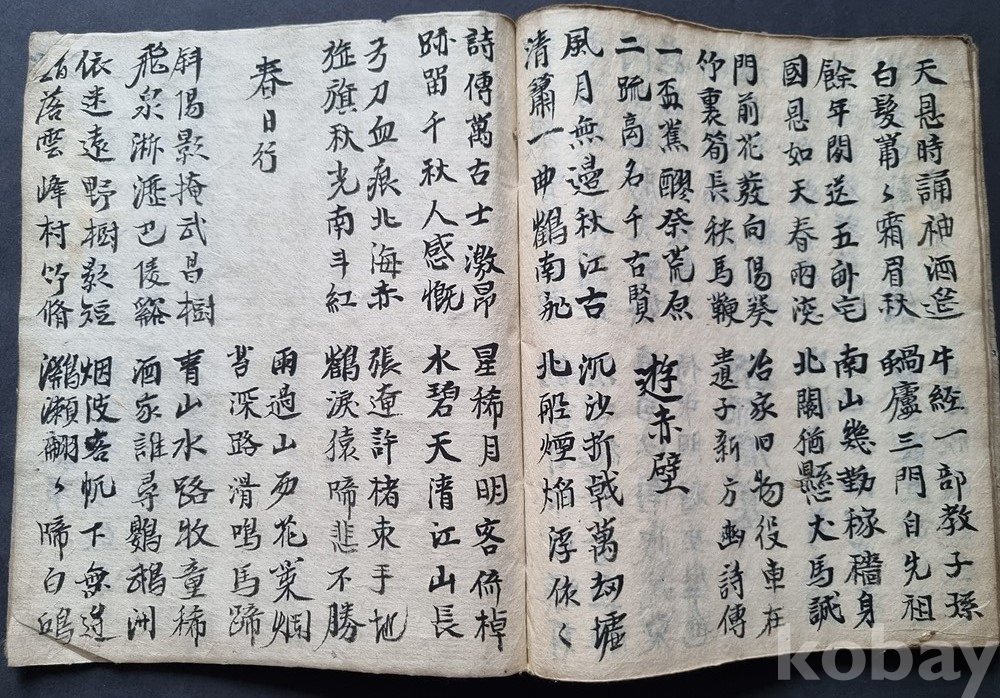 天恩時誦袖酒筵
牛經一部教子孫
白髮蕭〻霜眉秋
蝸廬三門自先祖
餘年閑送五畝宅
南山幾勤稼穡身
國恩如天春雨深
北闕猶懸犬馬誠
門前花發向陽葵
冶家旧物役車在
竹裏筍長秧馬鞭
遺子新方豳詩傳
一盃蕉醪祭荒原
二疏高名千古賢
遊赤壁
風月無邊秋江古
沉沙折戟萬劫墟
清簫一曲鶴南飛
北船煙焰浮依〻
詩傳萬古士激昂
星稀月明客倚棹
跡留千秋人感慨
水碧天清江山長
弓刀血痕北海赤
張遼許楮束手地
旌旗秋光南斗紅
鶴淚猿啼悲不勝
春日行
雨過山房花葉爛
苔深路滑鳴馬蹄
斜陽影掩武昌樹
青山水路牧童稀
飛泉淅瀝巴陵谿
酒家誰尋鸚鵡洲
依迷遠野樹影短
烟波客帆下無迹
落雲峰村竹脩
瀬翩〻啼白鷗
kobay